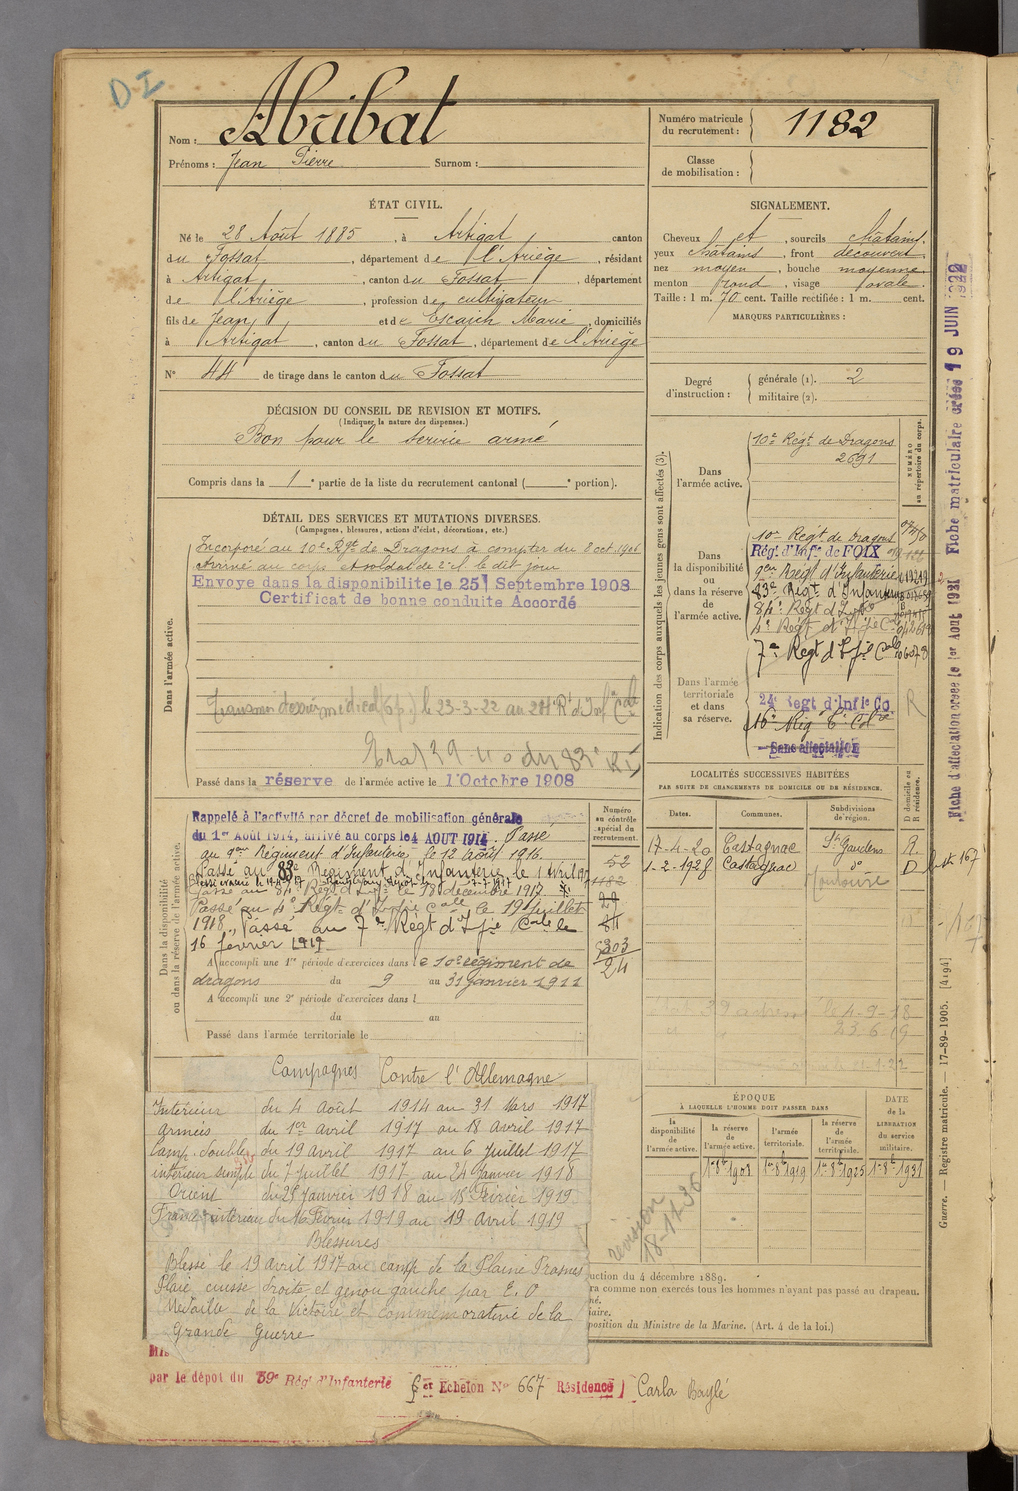 DI
Nom : Abribat
Prénoms : Jean Pierre Surnom :
Numéro matricule du recrutement : 1182
Classe de mobilisation :
ÉTAT CIVIL.
Né le 28 Août 1885, à Artigat, canton
du Fossat, département de l'Ariège, résidant
à Artigat, canton du Fossat, département
de l'Ariège, profession de cultivateur
fils de Jean et de Escaich Marie, domiciliés
à Artigat, canton du Fossat, département de l'Ariège
N° 44 de tirage dans le canton du Fossat
SIGNALEMENT.
Cheveux et, sourcils châtains.
yeux châtains, front découvert.
nez moyen, bouche moyenne.
menton rond, visage ovale.
Taille : 1 m. 70 cent. Taille rectifiée : 1 m. cent.
MARQUES PARTICULIÈRES :
Degré d'instruction : générale (1). 2
militaire (2).
DÉCISION DU CONSEIL DE REVISION ET MOTIFS.
(Indiquer la nature des dispenses.)
Bon pour le service armé
Compris dans la 1e partie de la liste du recrutement cantonal ( e portion).
DÉTAIL DES SERVICES ET MUTATIONS DIVERSES.
(Campagnes, blessures, actions d'éclat, décorations, etc.)
Dans l'armée active.
Incorporé au 10e Rgt de Dragons à compter du 8 oct. 1906
Arrivé au corps et soldat de 2e cl. le dit jour
Envoye dans la disponibilite le 25 Septembre 1908
Certificat de bonne conduite Accordé
Transmis dossier médical (6p.) le 23-3-22 au 24e Rt d'Inf Cole
Passé dans la réserve de l'armée active le 1 Octobre 1908
Indication des corps auxquels les jeunes gens sont affectés (3).
NUMÉRO au répertoire du corps.
Dans l'armée active.
10e Régt de Dragons
2691
Dans la disponibilité ou dans la réserve de l'armée active.
10e Régt de Dragons
Régt d'Infie de FOIX
9em Régt d'Infanterie
83e Régt d'Infanterie
84e Régt d'Infie
4e Régt d'Infie Cale
7e Régt d'Infie Cale
Dans l'armée territoriale et dans sa réserve.
24e Regt d'Infie Co
16e
Sans affectation
R
LOCALITÉS SUCCESSIVES HABITÉES
PAR SUITE DE CHANGEMENTS DE DOMICILE OU DE RÉSIDENCE.
Dates. Communes. Subdivisions de région. D domicile ou R résidence.
17-4-20 Castagnac St Gaudens R.
1-2-1928 Castagnac do D
Toulouse
Dans la disponibilité ou dans la réserve de l'armée active.
Numéro au contrôle spécial du recrutement.
52
1182
24
Rappelé à l'activité par décret de mobilisation générale
du 1er Août 1914, arrivé au corps le 4 AOUT 1914. Passé
au 9em Régiment d'Infanterie le 12 Août 1916.
Passé au 83e Régiment d'Infanterie le 1 Avril 1917
Passé au 84e Régt d'Infie le 13 décembre 1917
Passé au 4e Régt d'Infie cale le 19 juillet
1918, Passé au 7e Régt d'Infie Cale le
16 février 1919
A accompli une 1re période d'exercices dans le 10e régiment de
dragons du 9 au 31 janvier 1911
A accompli une 2e période d'exercices dans l
du au
Passé dans l'armée territoriale le
Campagnes Contre l'Allemagne
Intérieur du 4 Août 1914 au 31 Mars 1917
armées du 1er avril 1917 au 18 avril 1917
Camp. double du 19 avril 1917 au 6 juillet 1917
intérieur simple du 7 juillet 1917 au 24 janvier 1918
Orient du 25 janvier 1918 au 15 Février 1919
France intérieur du 16 Février 1919 au 19 avril 1919
Blessures
Blessé le 19 avril 1917 au camp de la Plaine Prosnes
Plaie cuisse droite et genou gauche par E. O
Médaille de la Victoire et commémorative de la
Grande Guerre
ÉPOQUE
À LAQUELLE L'HOMME DOIT PASSER DANS
la disponibilité de l'armée active. la réserve de l'armée active. l'armée territoriale. la réserve de l'armée territoriale. DATE de la LIBÉRATION du service militaire.
1er 8bre 1908 1er 8bre 1919 1er 8bre 1925 1er 8bre 1931
revision
uction du 4 décembre 1889.
ra comme non exercés tous les hommes n'ayant pas passé au drapeau.
né.
iaire.
position du Ministre de la Marine. (Art. 4 de la loi.)
par le dépot du 59e Rég. d'Infanterie Echelon N° 667 Résidence Carla Bayle
Fiche d'affectation créée le 1er Aout 1931 Fiche matriculaire créée 19 JUIN
Guerre. — Registre matricule. — 17-89-1905. [4194]